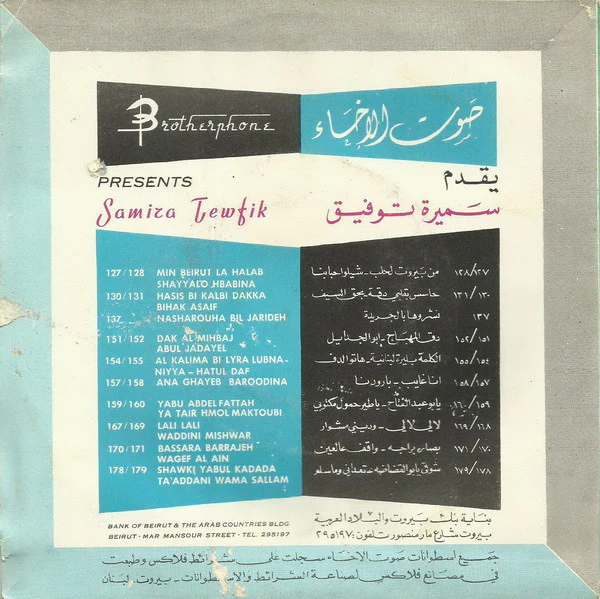 Brotherphone
صوت الإخاء
PRESENTS
يقدم
Samira Tewfik
سميرة توفيق
127/128 MIN BEIRUT LA HALAB
SHAYYALO HBABINA
130/131 HASIS BI KALBI DAKKA
BIHAK ASAIF
137 NASHAROUHA BIL JARIDEH
151/152 DAK AL MIHBAJ
ABUL JADAYEL
154/155 AL KALIMA BI LYRA LUBNA-
NIYYA - HATUL DAF
157/158 ANA GHAYEB BAROODINA
159/160 YABU ABDEL FATTAH
YA TAIR HMOL MAKTOUBI
167/169 LALI LALI
WADDINI MISHWAR
170/171 BASSARA BARRAJEH
WAGEF AL AIN
178/179 SHAWKI YABUL KADADA
TA'ADDANI WAMA SALLAM
١٢٨/١٢٧ من بيروت لحلب - شيلوا حبابنا
١٣١/١٣٠ حاسس بقلبي دقة بحق السيف
١٣٧ نشروها بالجريدة
١٥٢/١٥١ دق المهباج - ابو الجدايل
١٥٥/١٥٤ الكلمة بليرة لبنانية - هاتوا الدف
١٥٨/١٥٧ انا غايب - بارودنا
١٦٠/١٥٩ يابو عبد الفتاح - ياطير حمول مكتوبي
١٦٩/١٦٨ لالي لالي - وديني مشوار
١٧١/١٧٠ بصاره براجه - واقف عالعين
١٧٩/١٧٨ شوقي يابو القضاضه - تعداني وماسلم
BANK OF BEIRUT & THE ARAB COUNTRIES BLDG.
BEIRUT - MAR MANSOUR STREET - TEL. 295197
بناية بنك بيروت والبلاد العربية
بيروت شارع مار منصور تلفون: ٢٩٥١٩٧
جميع اسطوانات صوت الاخاء سجلت على شرائط فلاكس وطبعت
في مصانع فلاكس لصناعة الشرائط والاسطوانات - بيروت. لبنان